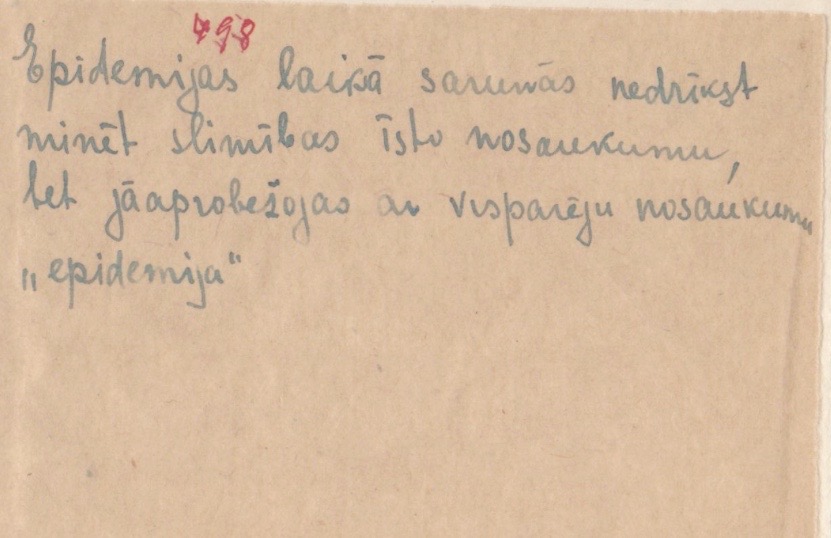 498
Epidemijas laikā sarunās nedrīkst
minēt slimības īsto nosaukumu,
bet jāaprobežojas ar vispārēju nosaukumu
„epidemija"